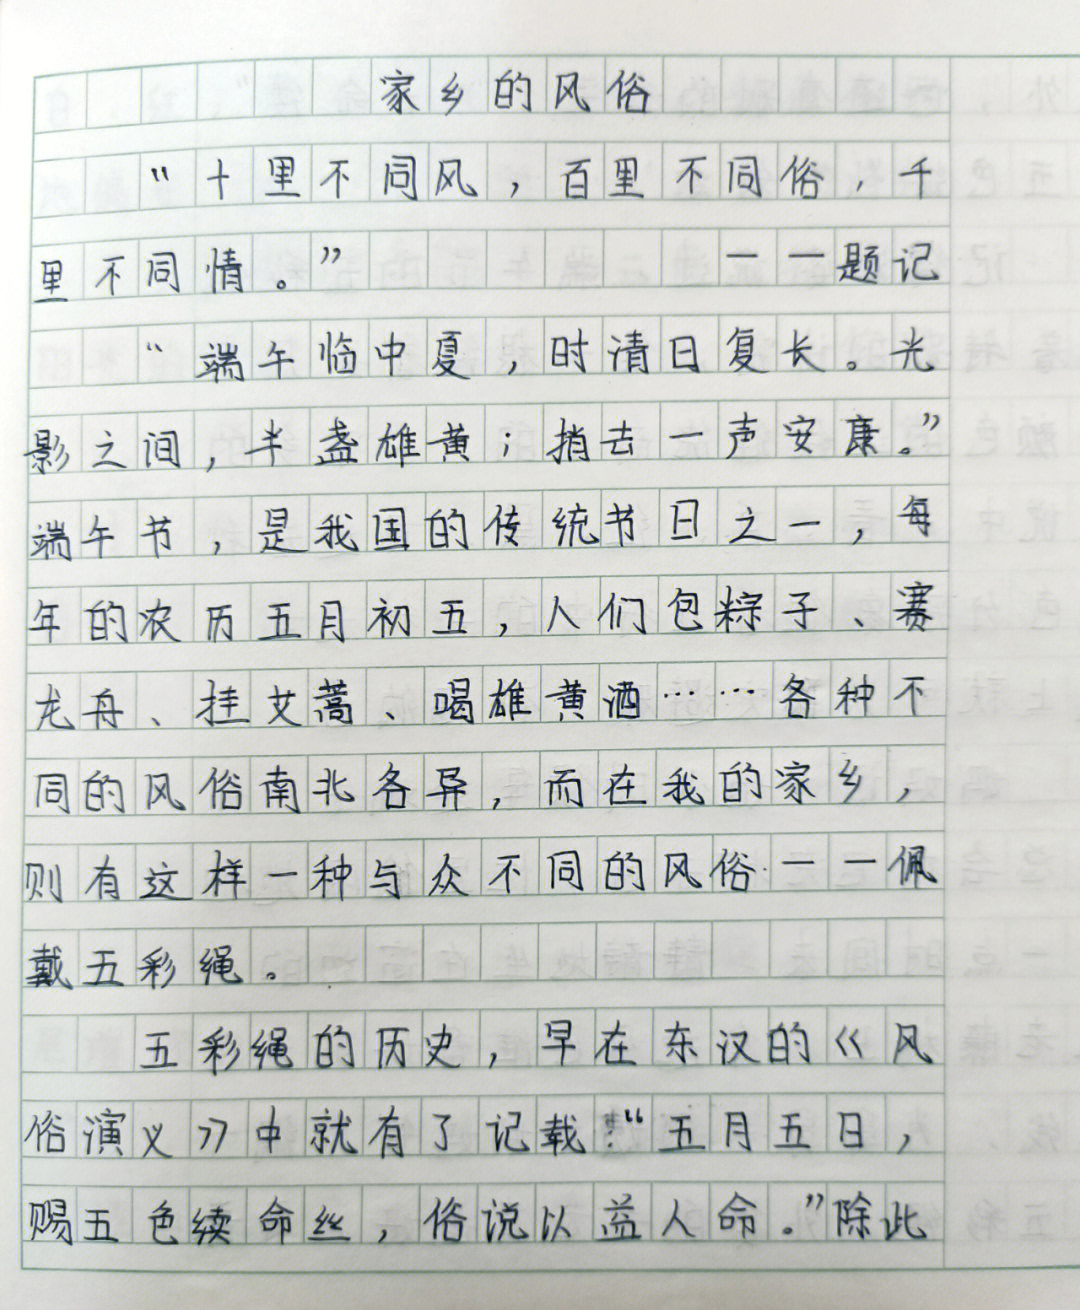 家乡的风俗
“十里不同风，百里不同俗，千
里不同情。” ——题记
“端午临中夏，时清日复长。光
影之间，半盏雄黄；捎去一声安康。”
端午节，是我国的传统节日之一，每
年的农历五月初五，人们包粽子、赛
龙舟、挂艾蒿、喝雄黄酒……各种不
同的风俗南北各异，而在我的家乡，
则有这样一种与众不同的风俗——佩
戴五彩绳。
五彩绳的历史，早在东汉的《风
俗演义》中就有了记载：“五月五日，
赐五色续命丝，俗说以益人命。”除此